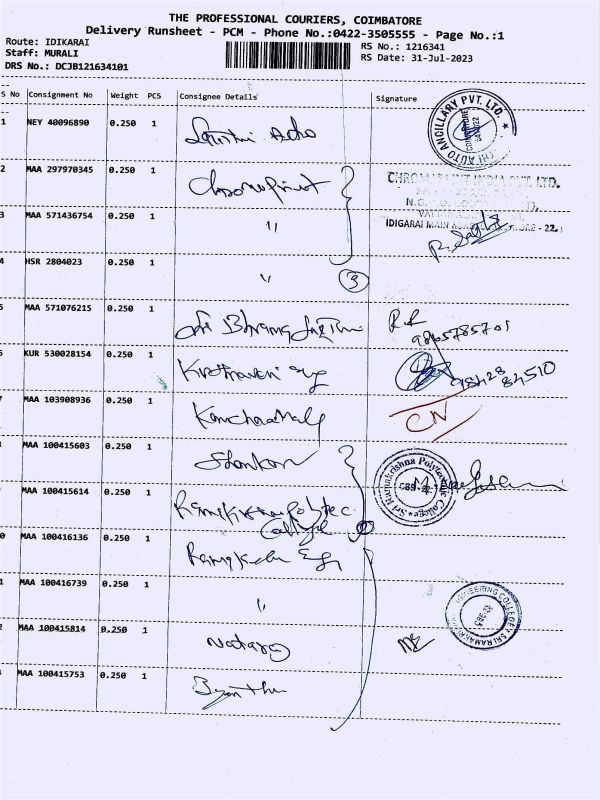 THE PROFESSIONAL COURIERS, COIMBATORE
Delivery Runsheet - PCM - Phone No.:0422-3505555 - Page No.:1
Route: IDIKARAI
RS No.: 1216341
Staff: MURALI
RS Date: 31-Jul-2023
DRS No.: DCJB121634101
S No Consignment No Weight PCS Consignee Details Signature
1 NEY 40096890 0.250 1
ANCILLARY PVT. LTD.
2 MAA 297970345 0.250 1 Chromoprint
CHROMAPRINT INDIA PVT. LTD.
3 MAA 571436754 0.250 1 "
IDIGARAI MAIN
4 HSR 2804023 0.250 1 " 3
5 MAA 571076215 0.250 1 Sri
9865785701
6 KUR 530028154 0.250 1
98428 84510
7 MAA 103908936 0.250 1 CN
MAA 100415603 0.250 1 Shankar
Sri Ramakrishna Polytechnic College
MAA 100415614 0.250 1 Ramakrishna Polytec
College
0 MAA 100416136 0.250 1
1 MAA 100416739 0.250 1 "
ENGINEERING COLLEGE
2 MAA 100415814 0.250 1 Nataraj
MAA 100415753 0.250 1